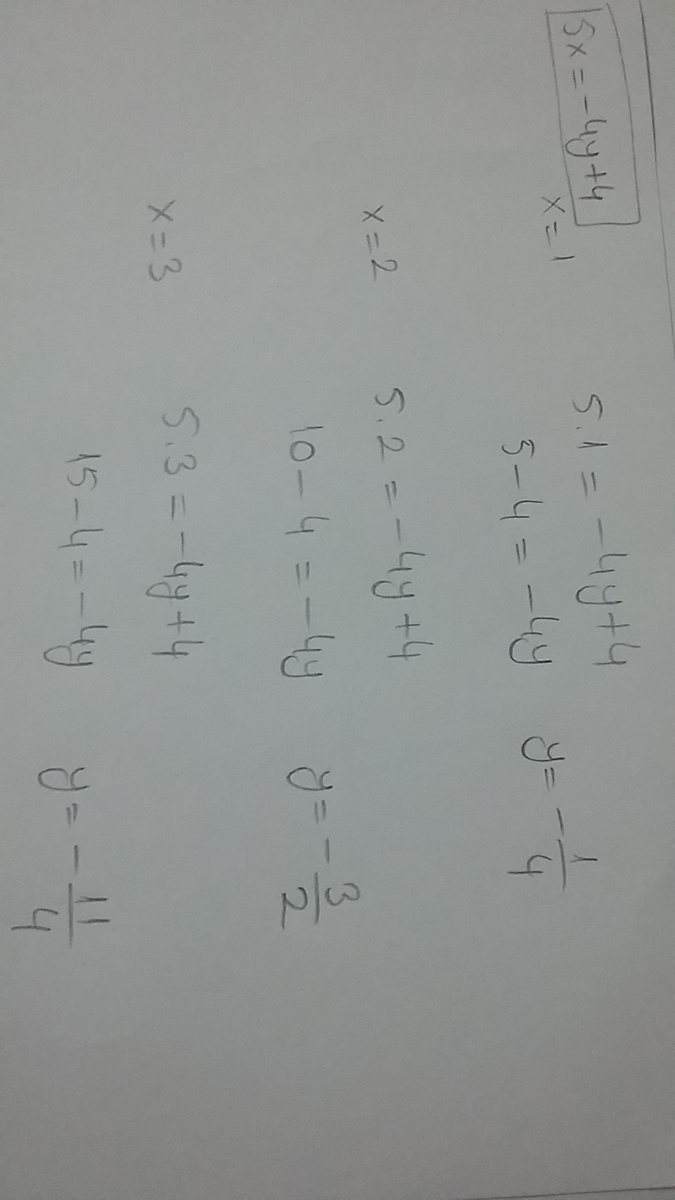 5x = -4y+4
x = 1 5.1 = -4y+4
5-4 = -4y y = -1/4
x = 2 5.2 = -4y+4
10-4 = -4y y = -3/2
x = 3 5.3 = -4y+4
15-4 = -4y y = -11/4